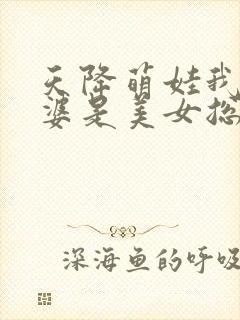 天降萌娃我
婆是美女总
深海鱼的呼吸